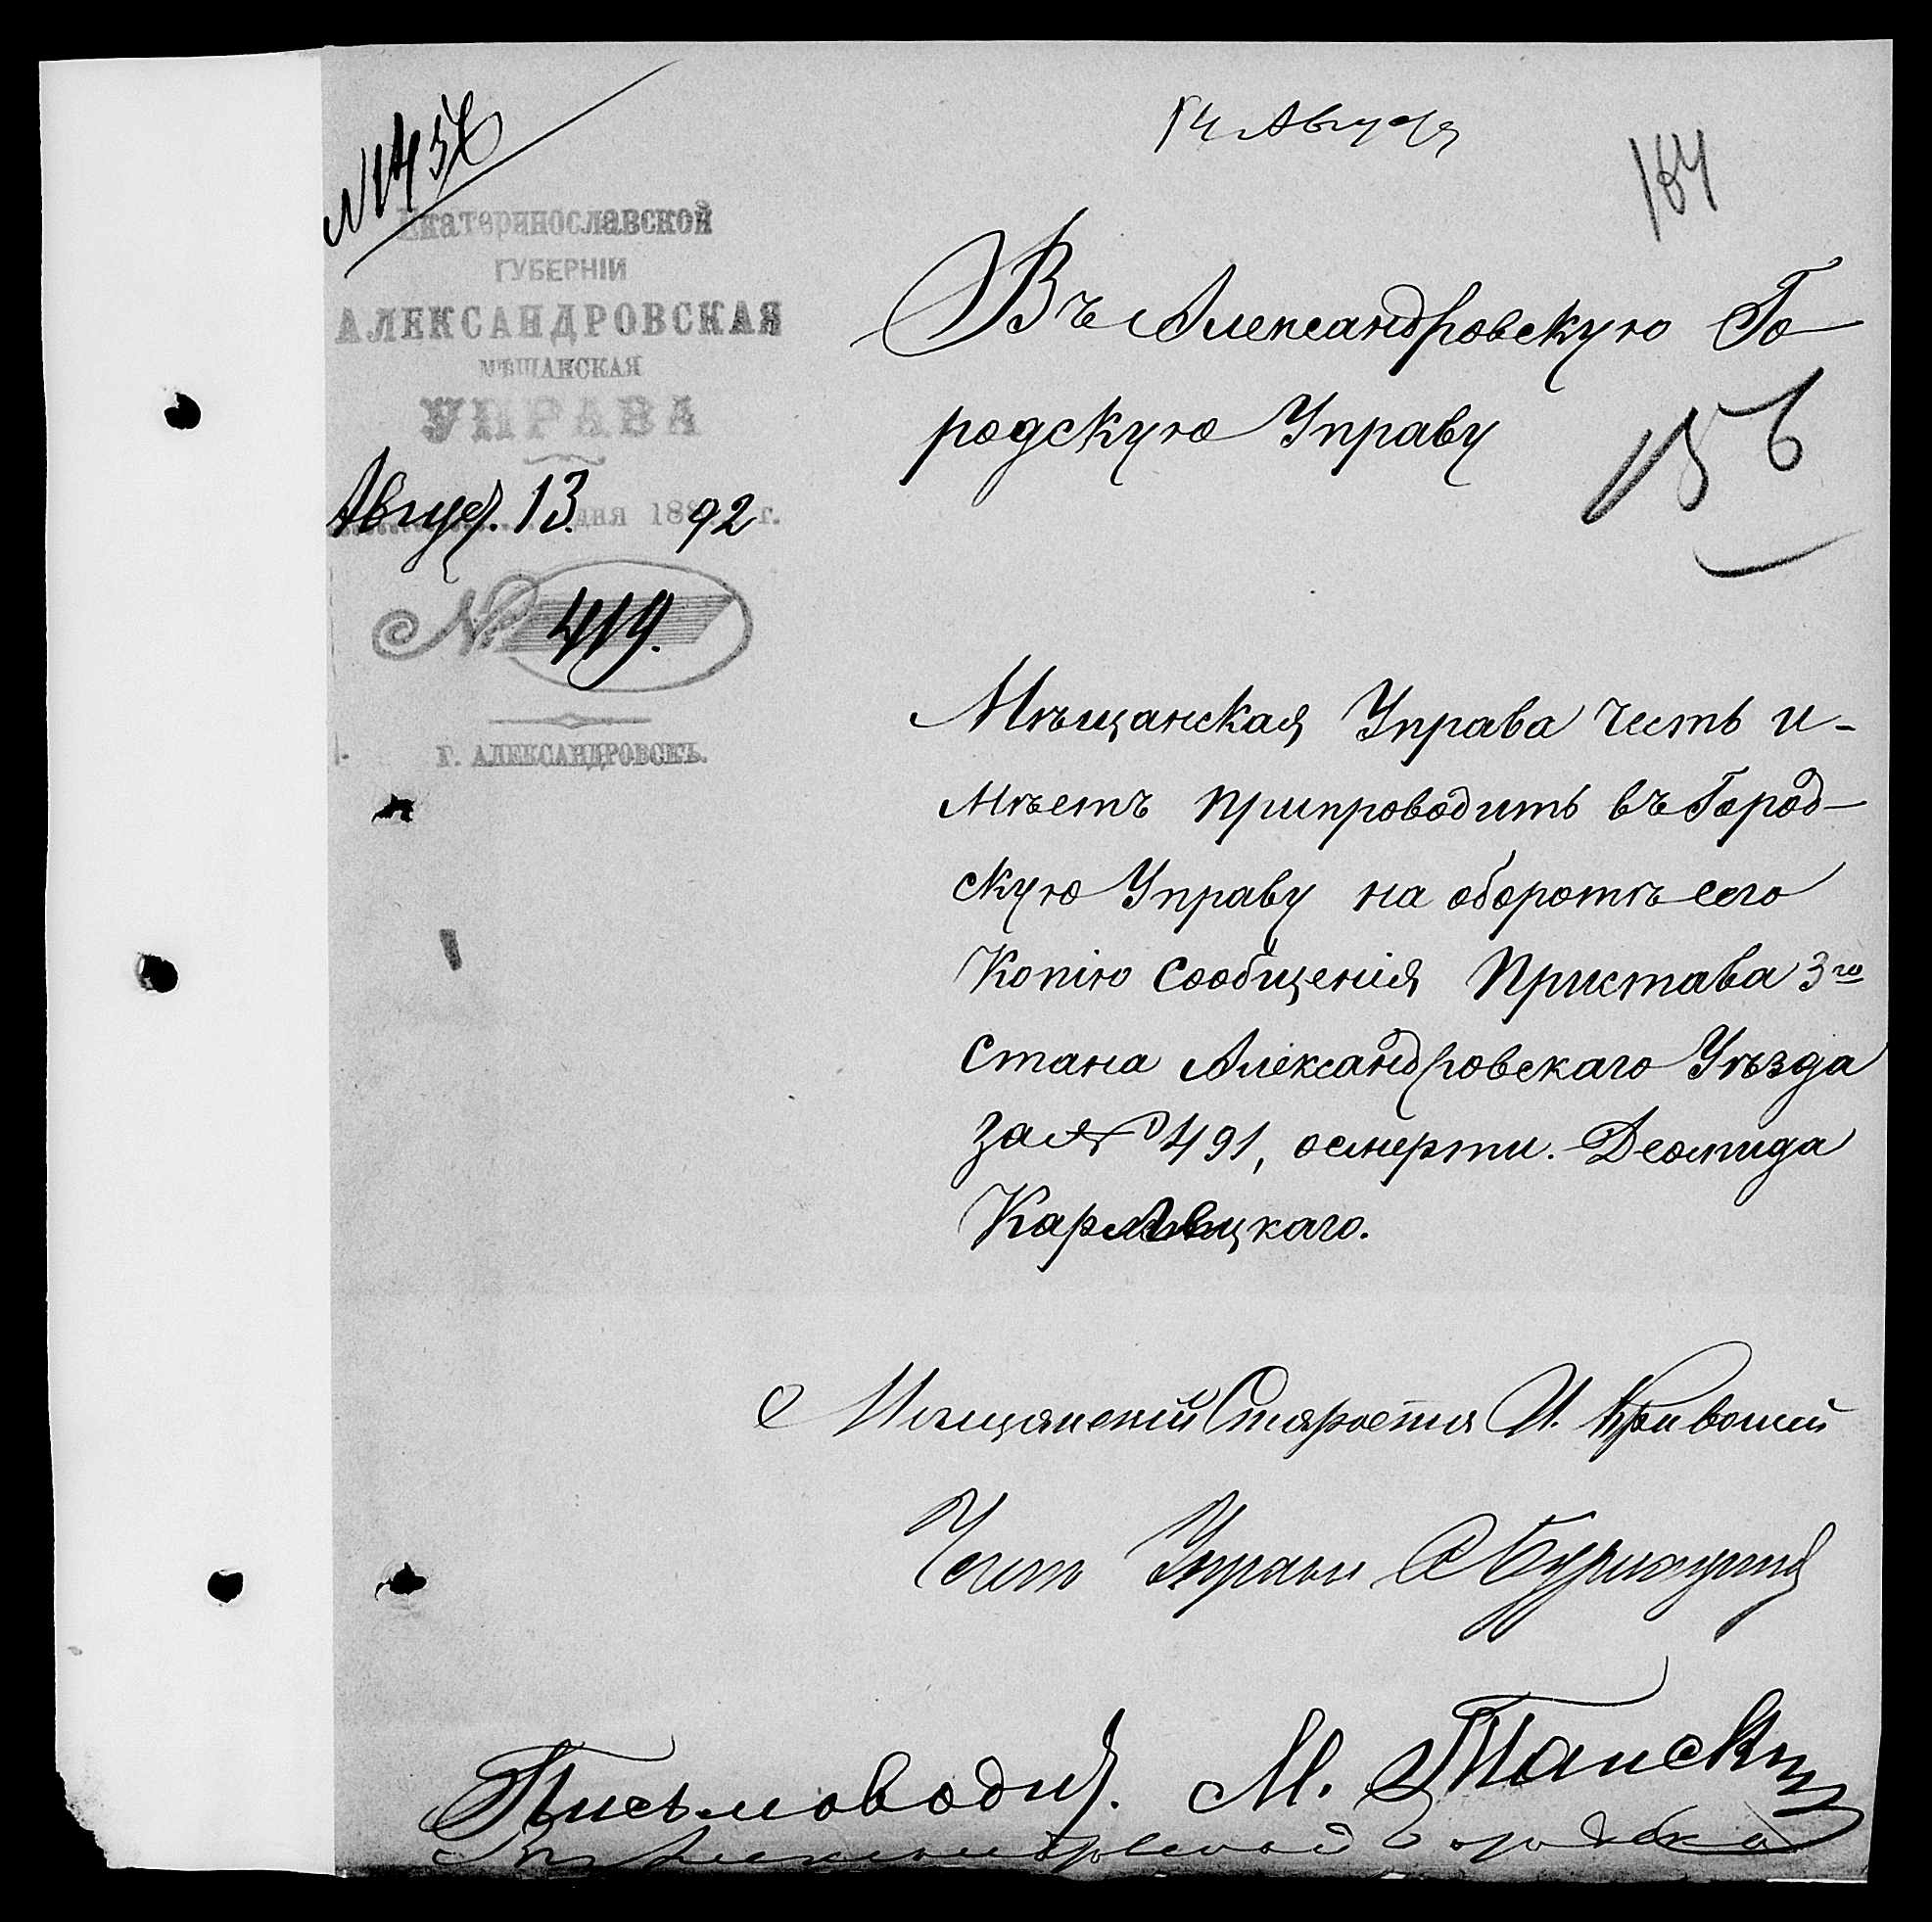 14 Августа
184
Екатеринославской
ГУБЕРНІИ
АЛЕКСАНДРОВСКАЯ
МѢЩАНСКАЯ
УПРАВА
Август. 13. дня 1892 г.
№ 419.
Г. АЛЕКСАНДРОВСКЪ.
Въ Александровскую Го-
родскую Управу
156
Мѣщанская Управа честь и-
мѣетъ припроводить въ Город-
скую Управу на оборотѣ сего
Копію сообщенія Пристава 3го
стана Александровскаго Уѣзда
за № 491, о смерти. Деомида
Мѣщанскій Староста И. Кривоший
Члень Управы
Письмоводит. М.